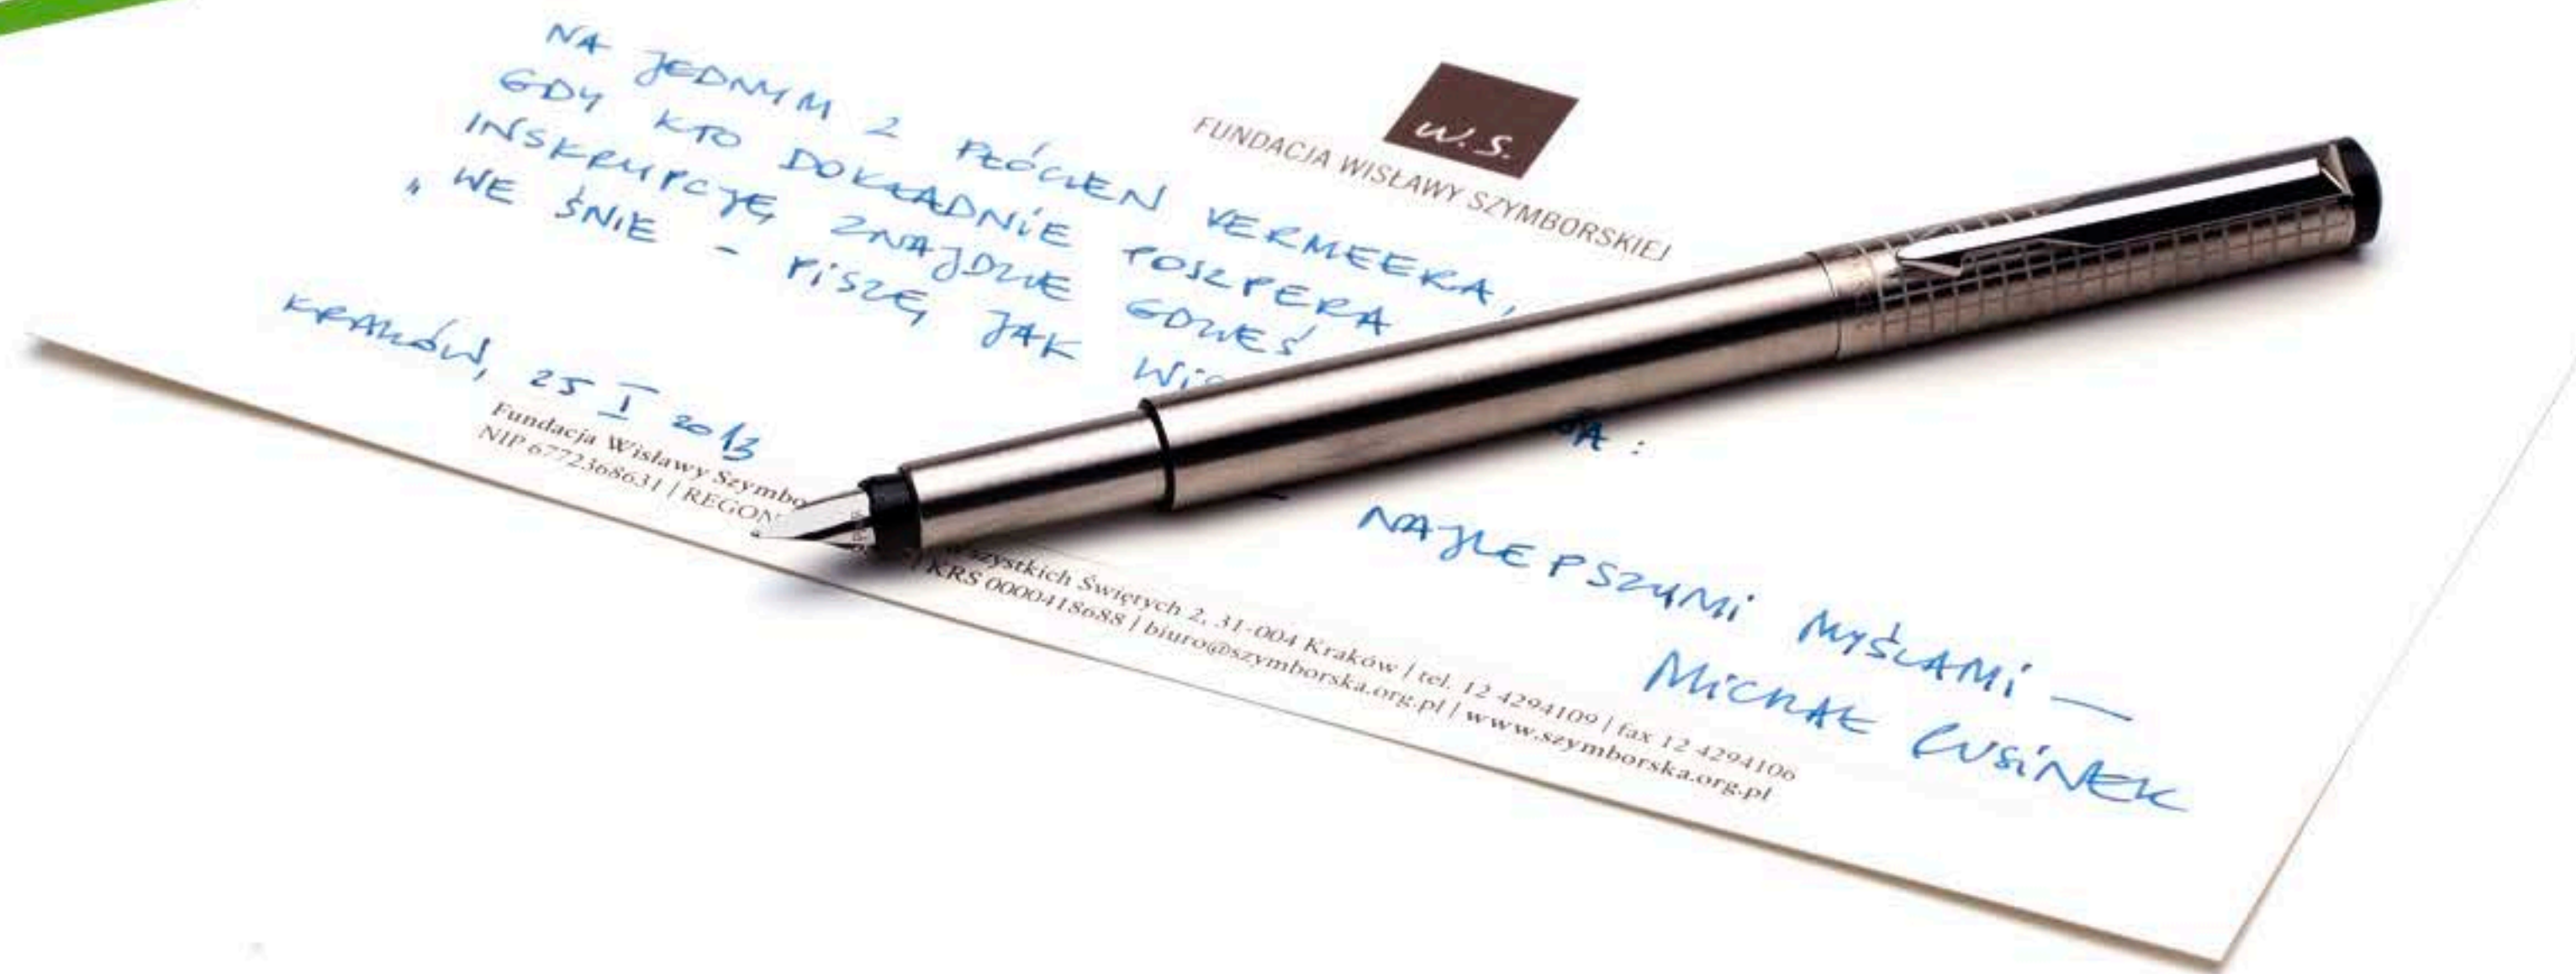 W.S.
FUNDACJA WISŁAWY SZYMBORSKIEJ
NA JEDNYM Z PŁÓCIEN VERMEERA,
GDY KTO DOKŁADNIE POSZPERA
INSKRYPCJĘ ZNAJDZIE GDZIEŚ
„WE ŚNIE - PISZĘ JAK
NAJLEPSZYMI MYŚLAMI —
MICHAŁ RUSINEK
KRAKÓW, 25 I 2013
Fundacja Wisławy Szymbo Wszystkich Świętych 2, 31-004 Kraków | tel. 12 4294109 | fax 12 4294106
NIP 6772368631 | REGON | KRS 0000418688 | biuro@szymborska.org.pl | www.szymborska.org.pl